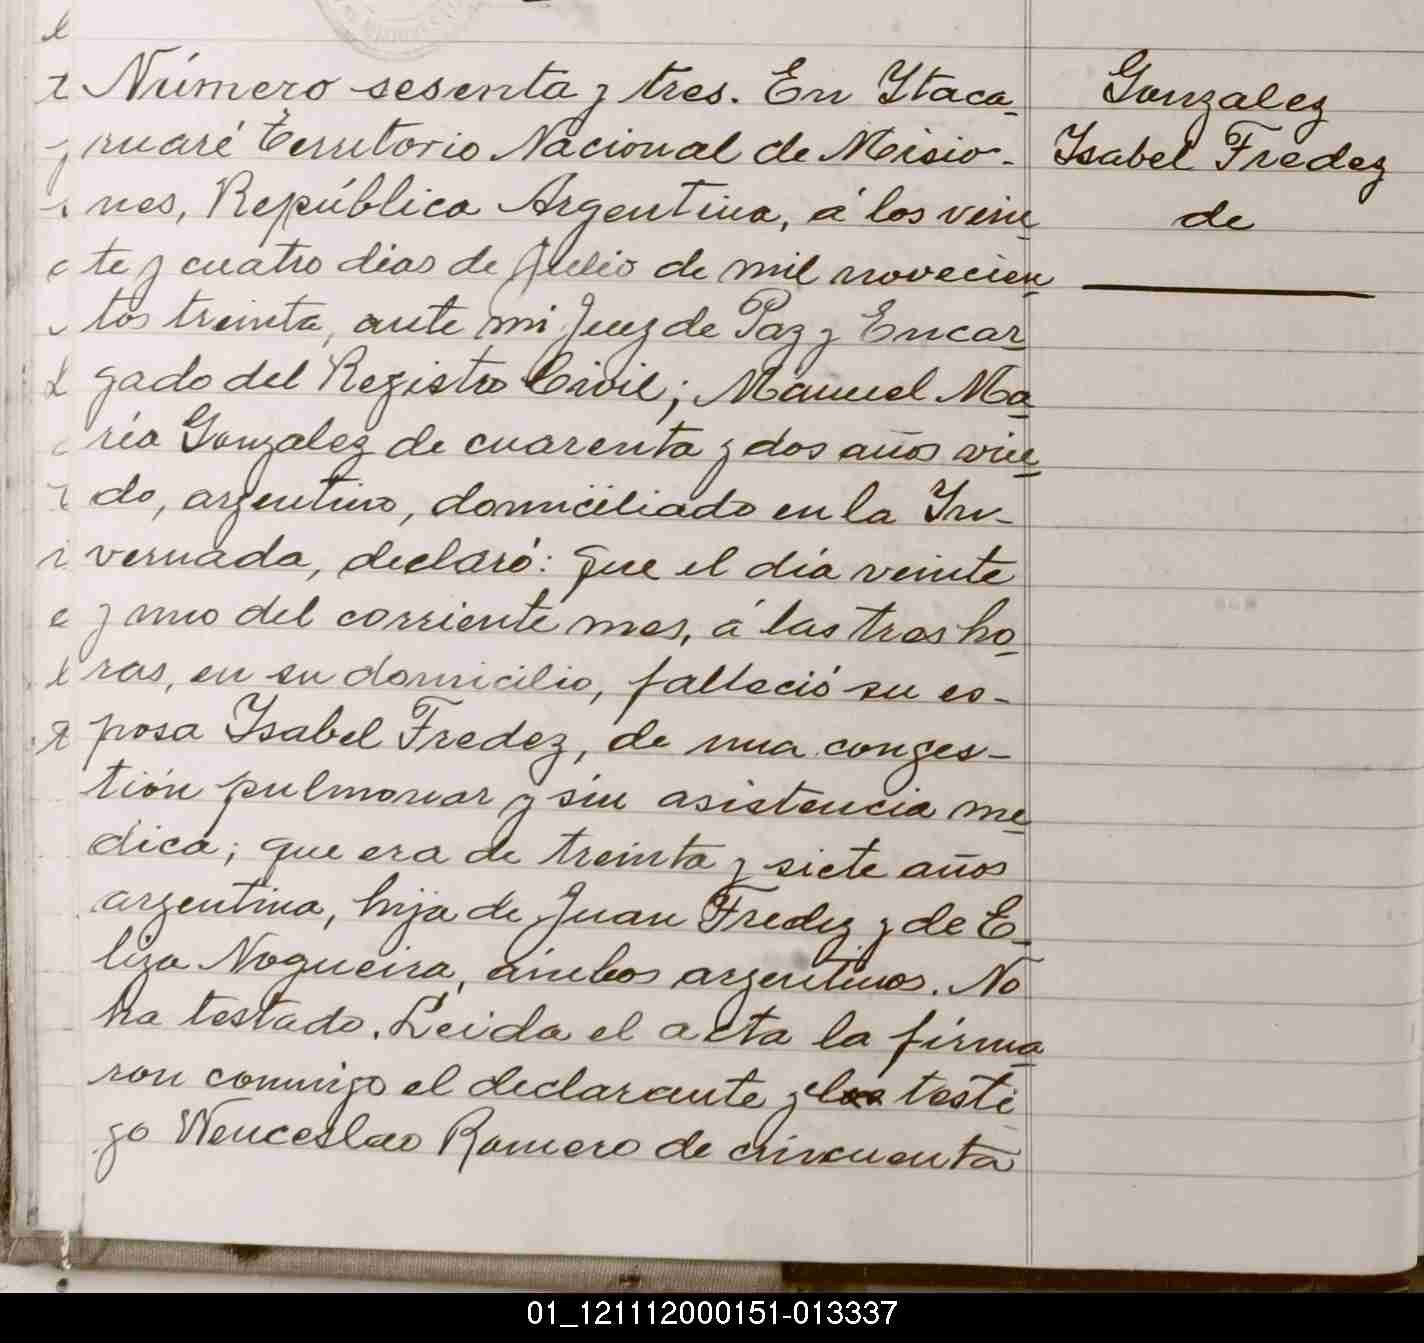 Número sesenta y tres. En Ytaca-
ruaré Territorio Nacional de Misio-
nes, República Argentina, á los vein-
te y cuatro dias de Julio de mil novecien-
tos treinta, ante mi Juez de Paz y Encar-
gado del Registro Civil; Manuel Ma-
ría Gonzalez de cuarenta y dos años viu-
do, argentino, domiciliado en la In-
vernada, declaró: que el día veinte
y uno del corriente mes, á las tres ho-
ras, en su domicilio, falleció su es-
posa Ysabel Fredez, de una conges-
tión pulmonar y sin asistencia me-
dica; que era de treinta y siete años
argentina, hija de Juan Fredez y de E-
liza Nogueira, ambos argentinos. No
ha testado. Leida el acta la firma-
ron conmigo el declarante y el testi
go Wenceslao Romero de cincuenta
Gonzalez
Ysabel Fredez
de
01_121112000151-013337